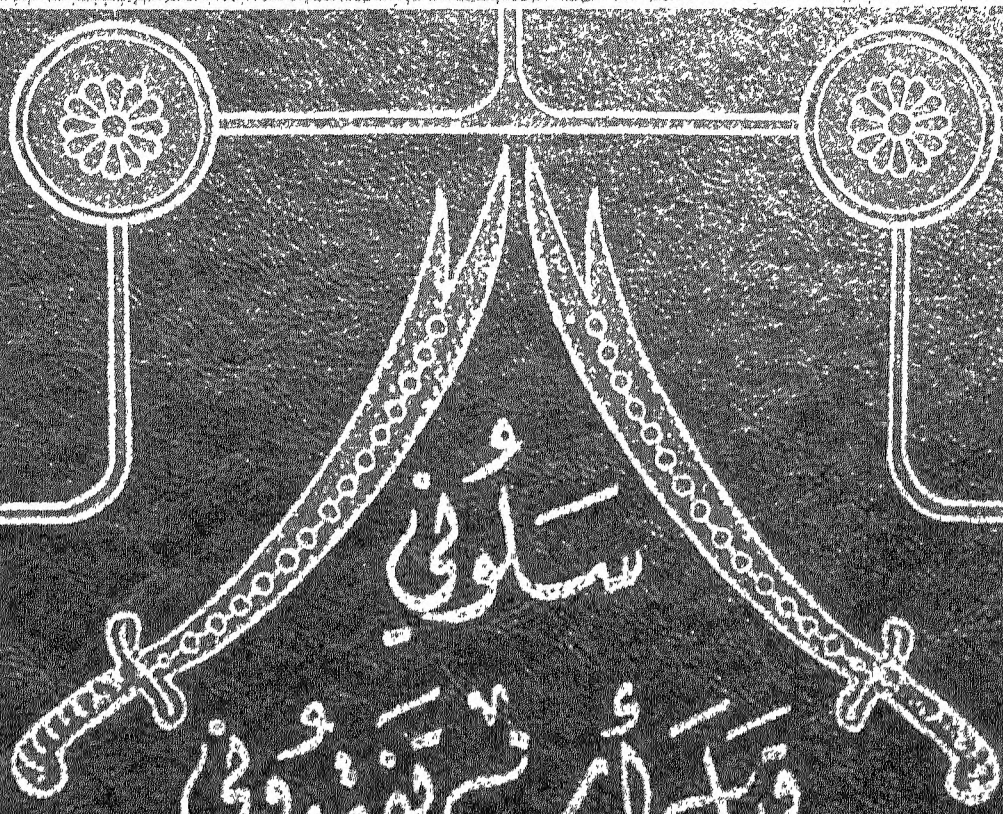 سَلُوني
قَبلَ أَنْ تَفْقِدُوني